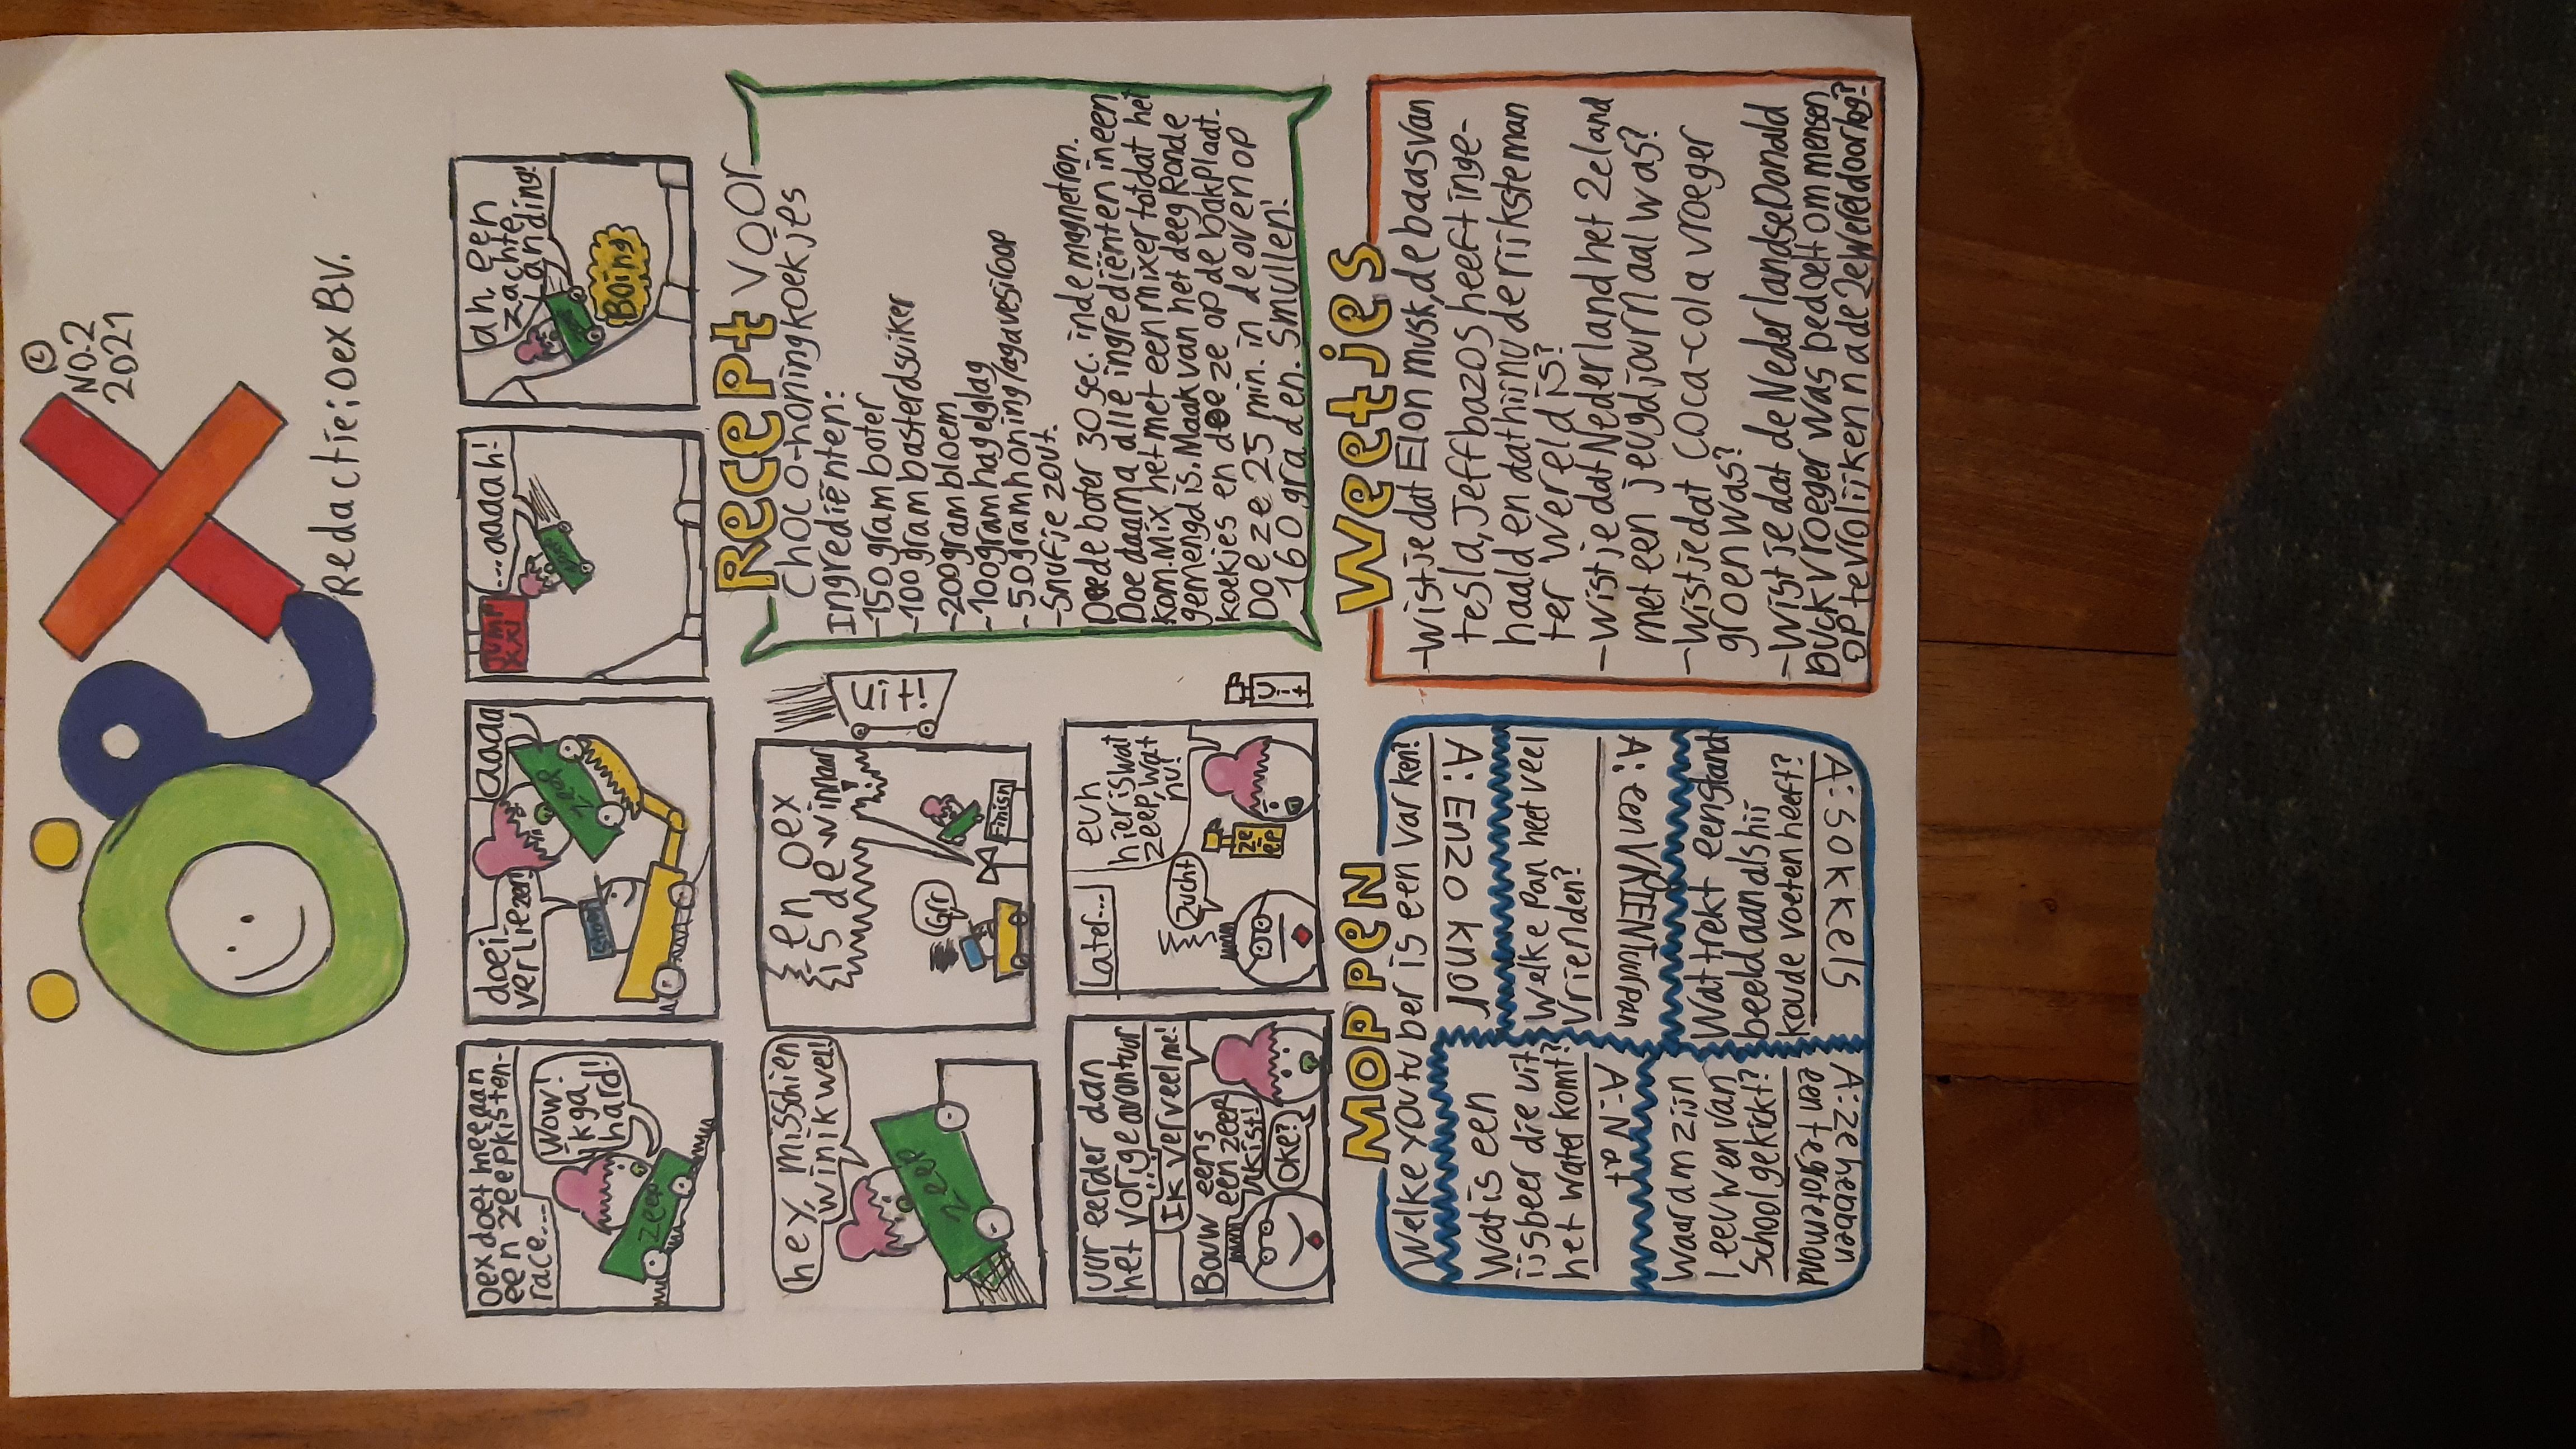 öex
©
NO.2
2021
Redactie: Oex B.V.
Oex doet mee aan
een zeepkisten-
race...
Wow!
ik ga
hard!
zeep
doei
verliezer!
aaaa
zeep
JUMP
XXL
...aaaah!
ah, een
zachte
landing!
BOing
hey, misschien
win ik wel!
zeep
en oex
is de winnaar
!
Grr
Finish
uit
uur eerder dan
het vorige avontuur
...
Ik verveel me!
Bouw eens
een zeep
kist!
Oke?
Later...
euh
hier is wat
zeep, wat
nu?
Zucht
ze
ep
uit
Recept voor
choco-honingkoekjes
Ingrediënten:
-150 gram boter
-100 gram basterdsuiker
-200 gram bloem
-100 gram hagelglag
-50 gram honing/agavesiroop
-Snufje zout.
Doe de boter 30 sec. in de magnetron.
Doe daarna alle ingrediënten in een
kom. Mix het met een mixer totdat het
gemengd is. Maak van het deeg Ronde
koekjes en doe ze op de bakplaat.
Doe ze 25 min. in de oven op
160 graden. Smullen!
MOPPEN
Welke youtuber is een varken?
A: Enzo knol
Wat is een
ijsbeer die uit
het water komt?
A: Nat
Welke pan heet veel
vrienden?
A: een VRIENtuurpan
Waarom zijn
leeuwen van
School gekickt?
A: ze hebben
een te grote mond
Wat trekt een stand
beeld aan als hij
koude voeten heeft?
A: sokkels
Weetjes
-Wist je dat Elon musk, de baas van
tesla, Jeff bazos heeft inge-
haald en dat hij nu de rijkste man
ter wereld is?
-Wist je dat Nederland het 2e land
met een jeugdjournaal was?
-Wist je dat coca-cola vroeger
groen was?
-Wist je dat de Nederlandse Donald
Duck vroeger was bedoelt om mensen
op te vrolijken na de 2e Wereldoorlog?